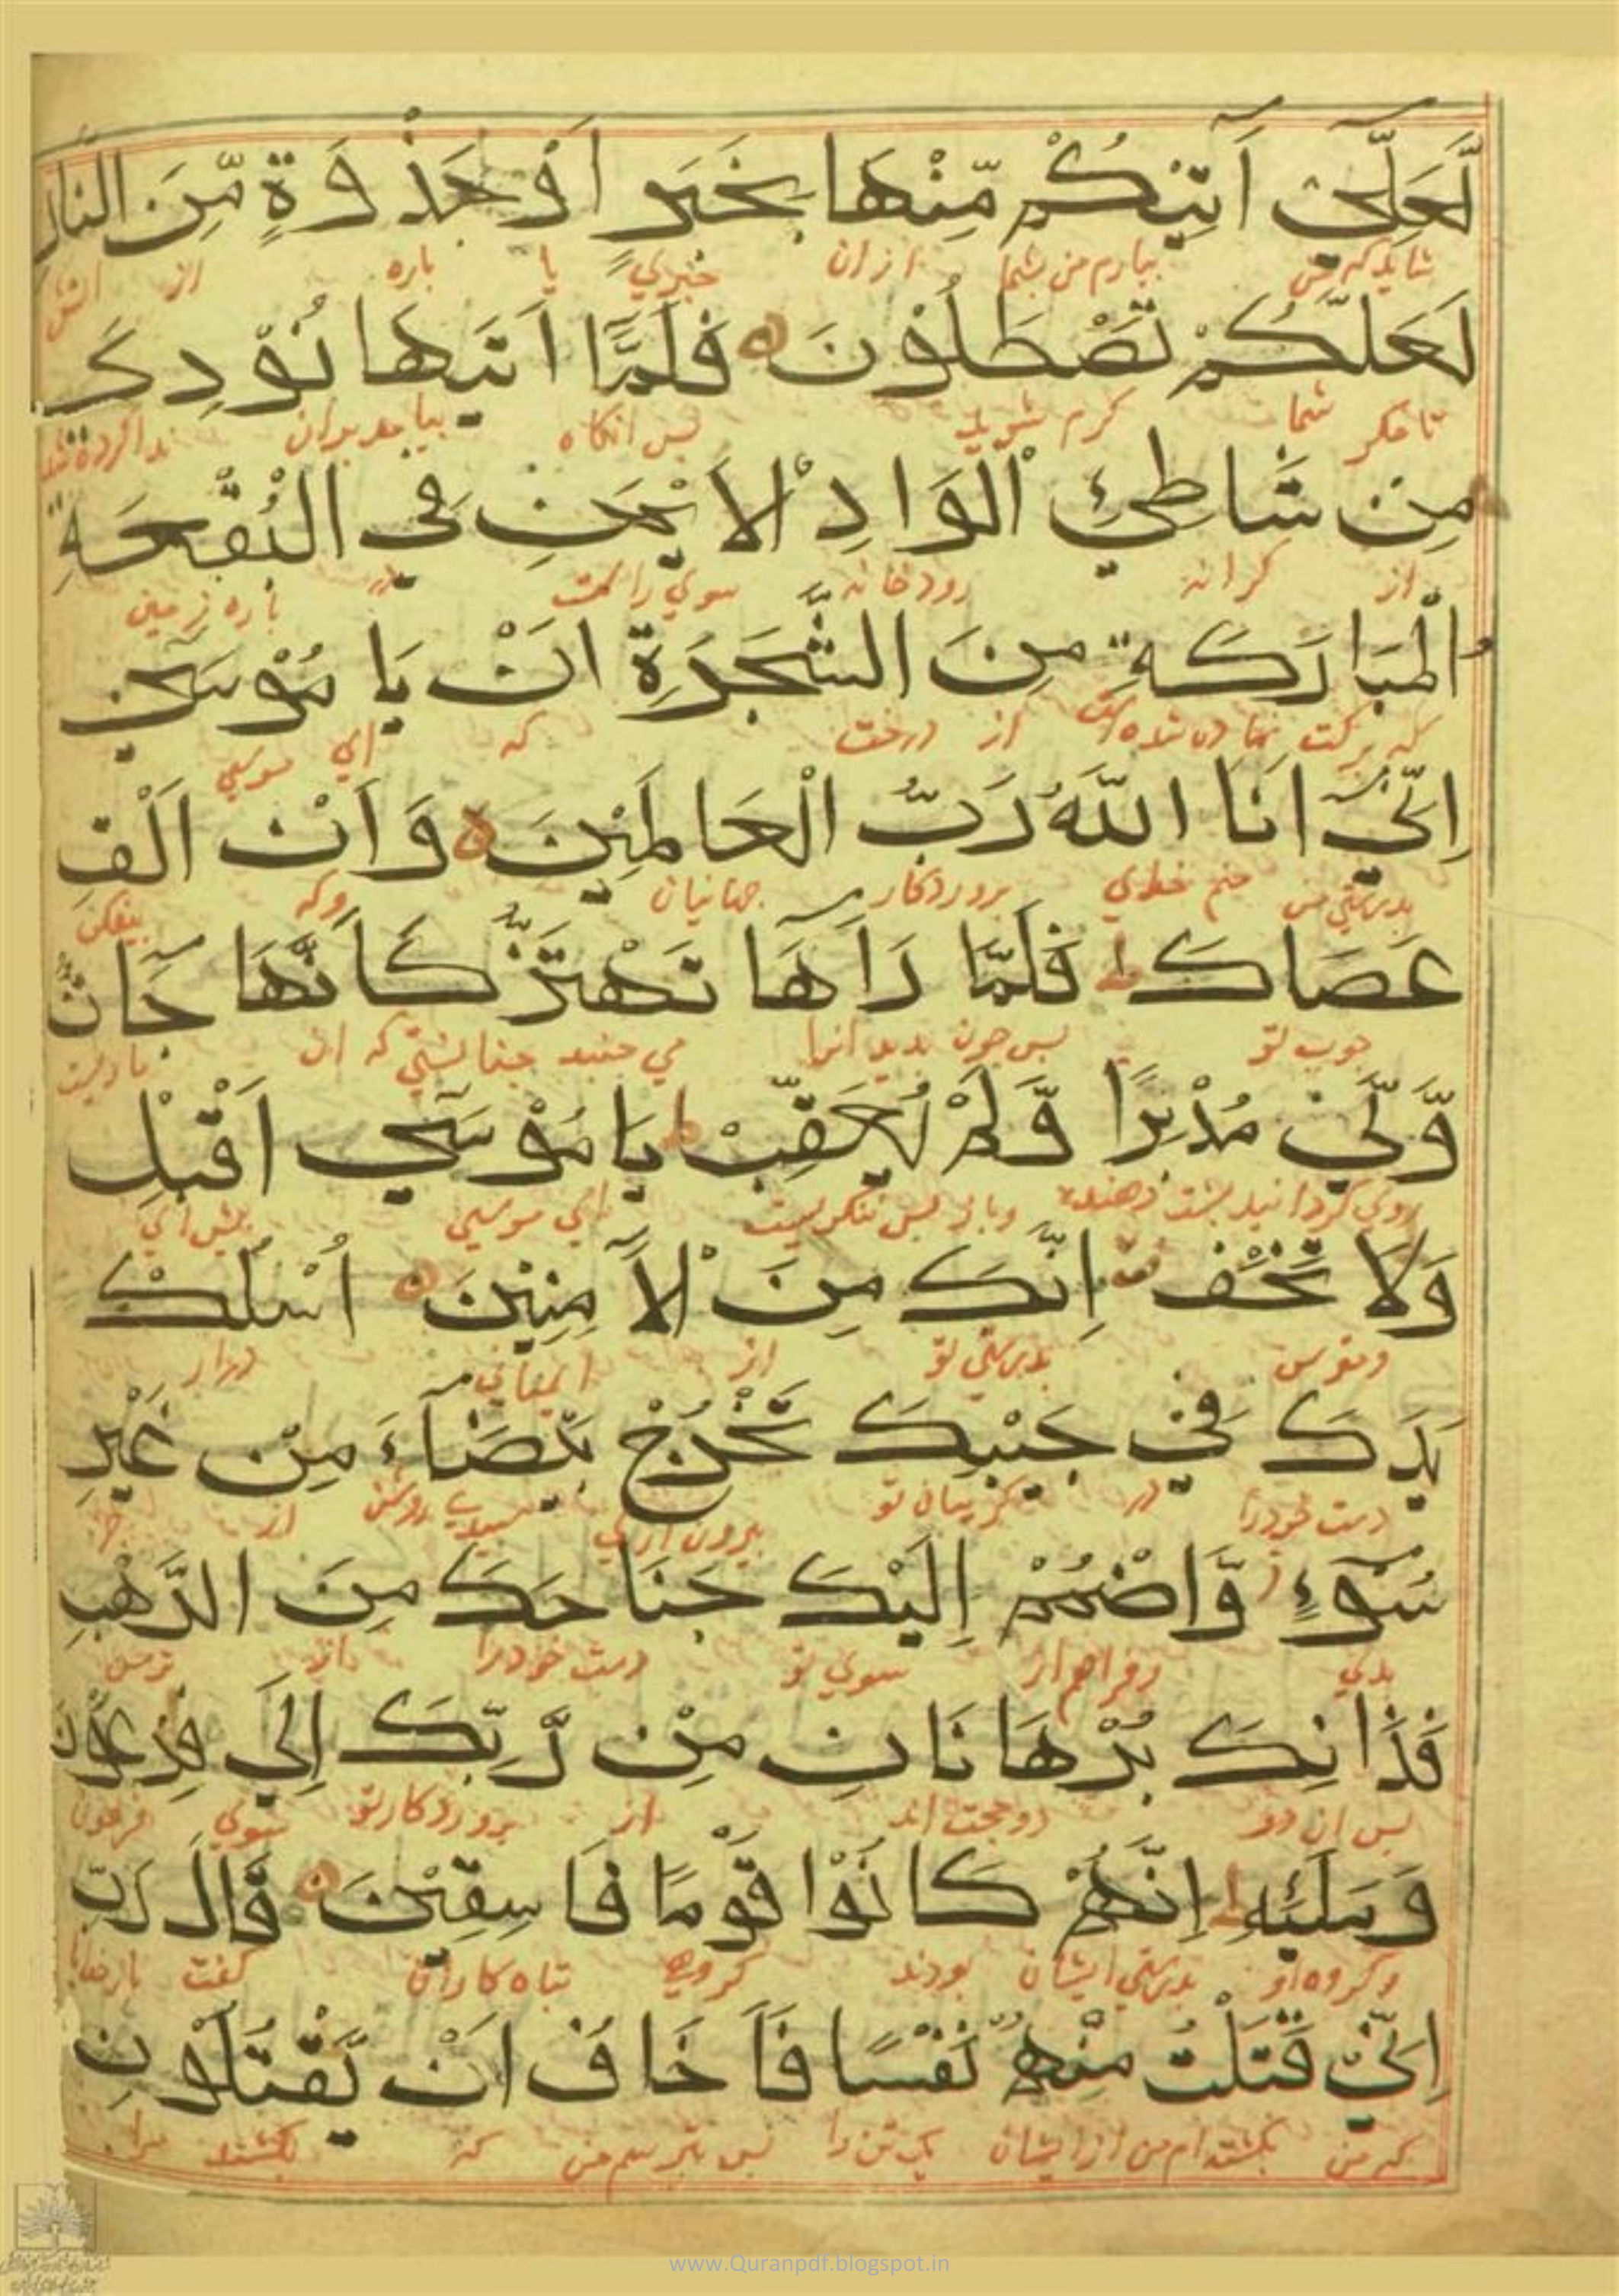 لَّعَلِّي آتِيكُمْ مِّنْهَا بِخَبَرٍ اَوْ جَذْوَةٍ مِّنَ النَّارِ
شاید که من بیارم من بشما از ان خبری یا پاره از اتش
لَعَلَّكُمْ تَصْطَلُوْنَ فَلَمَّا اَتَيهَا نُوْدِيَ
تا مکر شما کرم شوید پس انکاه بیامد بران ندا کرده شد
مِنْ شَاطِئِ الْوَادِ الْاَيْمَنِ فِي الْبُقْعَةِ
از کرانه رودخانه سوی راست در پاره زمین
الْمُبَارَكَةِ مِنَ الشَّجَرَةِ اَنْ يَا مُوْسَى
که برکت نهاده شده است از درخت که ای موسی
اِنِّي اَنَا اللَّهُ رَبُّ الْعَالَمِيْنَ وَاَنْ اَلْقِ
بدرستی من منم خدای پروردکار جهانیان وکه بیفکن
عَصَاكَ ط فَلَمَّا رَاَهَا تَهْتَزُّ كَاَنَّهَا جَانٌّ
چوب تو پس چون بدید انرا می جنبد چنانستی که ان ماریست
وَّلَّى مُدْبِرًا وَّلَمْ يُعَقِّبْ ط يَا مُوْسَى اَقْبِلْ
روی کردانید پشت دهنده وباز پس ننکریست ای موسی پیش ای
وَلَا تَخَفْ اِنَّكَ مِنَ الْاَمِنِيْنَ اُسْلُكْ
ومترس بدرستی تو از ایمنانی درار
يَدَكَ فِي جَيْبِكَ تَخْرُجْ بَيْضَآءَ مِنْ غَيْرِ
دست خودرا در کریبان تو بیرون اری سپید روشن از جز
سُوْءٍ وَّاضْمُمْ اِلَيْكَ جَنَاحَكَ مِنَ الرَّهْبِ
بدی وفراهم ار سوی تو دست خودرا از ترس
فَذَانِكَ بُرْهَانَانِ مِنْ رَّبِّكَ اِلَى فِرْعَوْنَ
پس ان دو دو حجت اند از پروردکار تو بسوی فرعون
وَمَلَئِهِ ط اِنَّهُمْ كَانُوْا قَوْمًا فَاسِقِيْنَ قَالَ رَبِّ
وکروه او بدرستی ایشان بودند کروهی تباه کاران کفت
اِنِّي قَتَلْتُ مِنْهُمْ نَفْسًا فَاَخَافُ اَنْ يَّقْتُلُوْنِ
که من بکشته ام من از ایشان یک تن را پس بترسم من که بکشند مرا
www.Quranpdf.blogspot.in